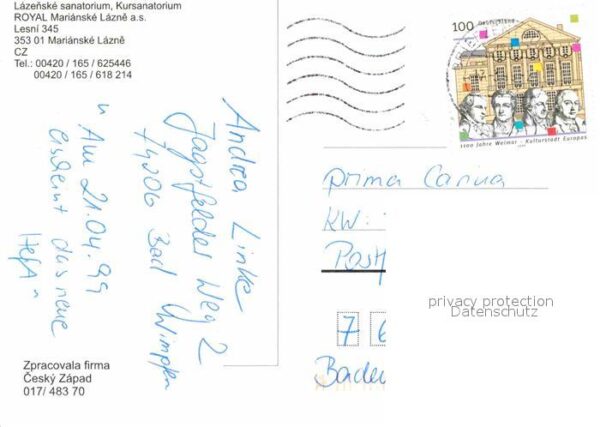 Lázeňské sanatorium, Kursanatorium
ROYAL Mariánské Lázně a.s.
Lesní 345
353 01 Mariánské Lázně
CZ
Tel.: 00420 / 165 / 625446
00420 / 165 / 618 214
Andrea Linke
Jagstfelder Weg 2
74206 Bad Wimpfen
" Am 21.04.99
das neue
Heft "
Zpracovala firma
Český Západ
017/ 483 70
100 Deutschland
1100 Jahre Weimar - Kulturstadt Europas
prima Carina
KW:
Postf
7 6
Baden
privacy protection
Datenschutz